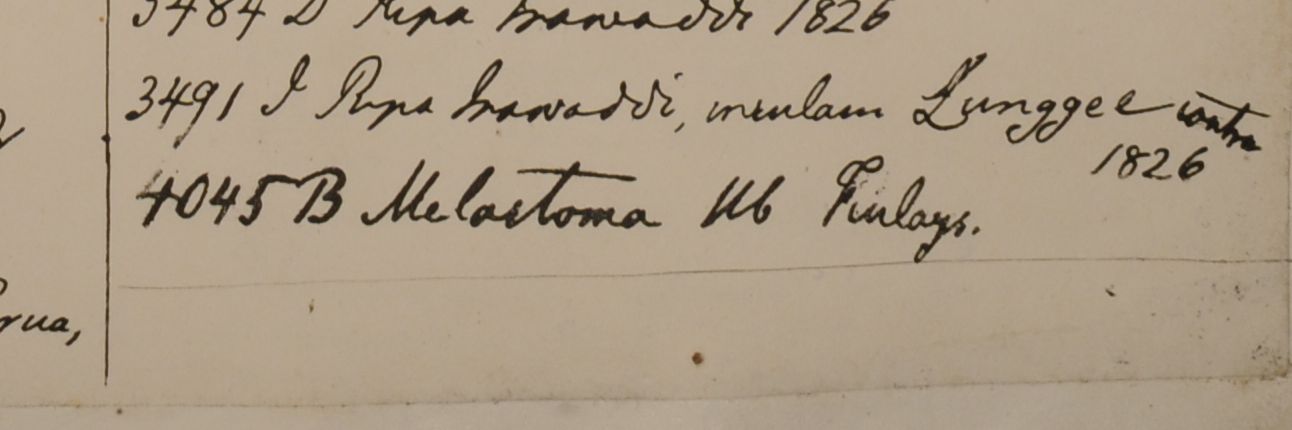 3484 D Ripa Irawaddi 1826
3491 I Ripa Irawaddi, insulam Lunggee contra
1826
4045 B Melastoma Hb Finlays.
rua,